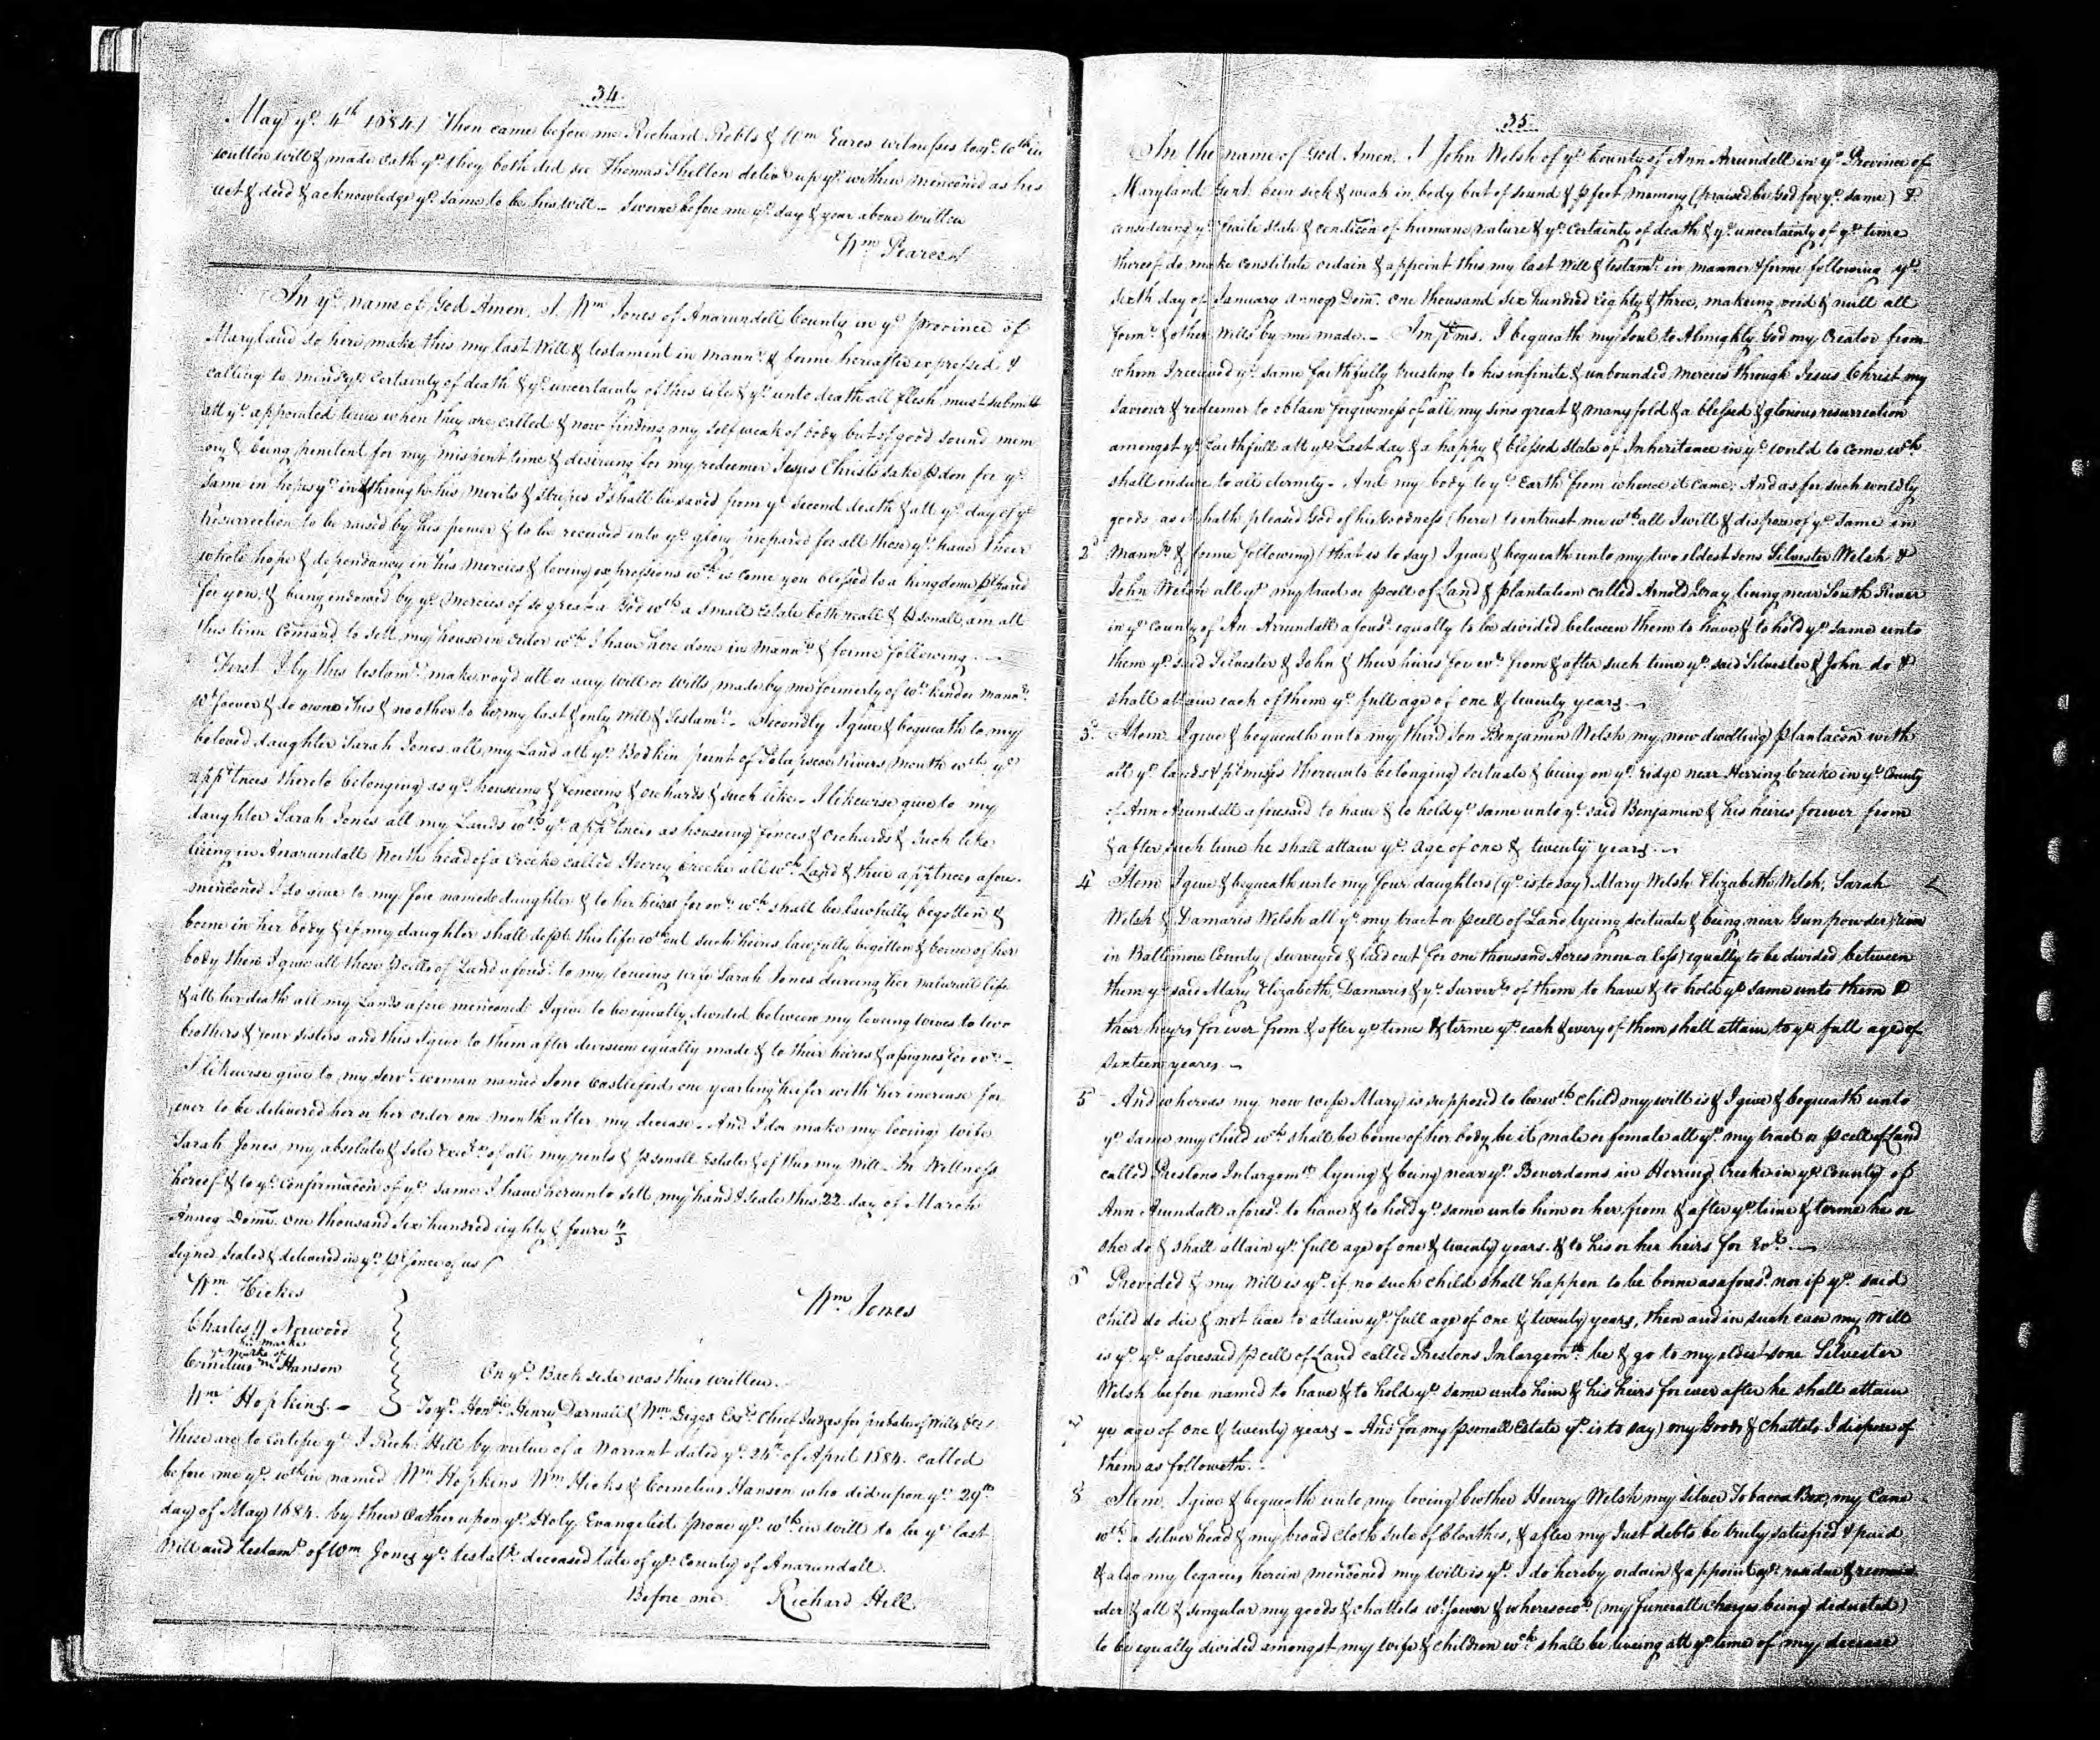 34.
May ye. 4th 1684 / Then came before me Richard Robts & Wm Eures witnesses to ye. wth in
written will & made oath yt. they both did see Thomas Shelton deliver up ye. within menconed as his
act & deed & acknowledge ye. same to be his will - Sworne before me ye. day & year above written
Wm Pearce
In ye. name of God Amen. I Wm Jones of Anarundell County in ye province of
Maryland do here make this my last Will & testament in mannr. & forme hereafter expressed &
calling to mind ye certainty of death & ye. uncertainty of this life & yt. unto death all flesh must submitt
att ye. appointed time when they are called & now finding my self weak of body but of good sound mem
ory & being penitent for my mispent time & desireing for my redeemer Jesus Christs sake pdon for ye.
same in hopes yt. in & through his merits & stripes I shall be saved from ye. second death & att ye. day of ye
resurrection to be raised by his power & to be received into ye. glory prepared for all those yt. have their
whole hope & dependancy in his mercies & loving expressions wch. is come you blessed to a kingdome
for you, & being endowed by ye. mercies of so great a God wth a small Estate both reall & psonall, am att
this time Comand to sett my house in order wch. I have here done in mannr. & forme following.
First I by this testamt. make voyd all or any will or wills made by me formerly of wt. kinde mannr.
wt. soever & do owne this & no other to be my last & only Will & Testamt. - Secondly I give & bequeath to my
beloved daughter Sarah Jones all my Land att ye. Bodkin point of Potapscoe Rivers Mouth wth ye
apptnces thereto belonging as ye. houseing & fenceing & orchards & such like - I likewise give to my
daughter Sarah Jones all my Lands wth. ye. apptnces as houseing fences & Orchards & Such like
lieing in Anarundall North head of a Creeke called Creeke all wch. Land & their apptnces afore-
menconed I do give to my fore named daughter & to her heires for evr. wch. shall be lawfully begotten &
borne in her body & if my daughter shall dept. this life wth out such heires lawfully begotten & borne of her
body then I give all these pcells of Land aforesd. to my loveing wife Sarah Jones dureing her naturall life
& att her death all my Lands afore menconed I give to be equally divided between my loveing wives to two
brothers & four sisters and this I give to them after divisions equally made & to their heires & assignes for evr. -
I likewise give to my servt. woman named Jone Castleford one yearling heifer with her increase for
ever to be delivered her or her order one month after my decease. And I do make my loving wife
Sarah Jones my absolute & sole Exectr. of all my & psonall Estate & of this my Will In Wittness
hereof & to ye. Confirmacon of ye. same I have hereunto sett my hand & seale this 22 day of March
Annoq Domi. one thousand six hundred eighty & foure
Signed Sealed & delivered in ye. psence of us
Wm. Hickes
Wm Jones
Charles H Norwood
his marke
ye marke of
Cornelius Hanson
On ye. Back side was thus written.
Wm Hopkins. -
To ye. Honble. Henry Darnall & Wm. Digges Esqrs. Chief Judges for probate of Wills &c /
These are to Certifie yt. I Rich: Hill by virtue of a Warrant dated ye. 24th. of April 1684. called
before me ye. wth in named Wm. Hopkins Wm. Hicks & Cornelius Hanson who did upon ye. 29th
day of May 1684. by their Oathes upon ye. Holy Evangelist prove ye. wth in will to be ye last
Will and testamt. of Wm Jones ye. testatr. deceased late of ye. County of Anarundall.
Before me. Richard Hill.
35.
In the name of God Amen. I John Welsh of ye. County of Ann Arrundell in ye. Province of
Maryland Gent. been sick & weak in body but of sound & pfect memory (praised be God for ye. same) &
considering ye. fraile state & condicon of humane nature & ye. certainty of death & ye. uncertainty of ye. time
thereof do make constitute ordain & appoint this my last Will & testamt. in manner & forme following ye.
sixth day of January annoq Dom. One thousand Six hundred Eighty & three, makeing void & null all
formr. & other Wills by me made. - Imprms. I bequeath my Soul to Almighty God my Creator from
whom I received ye. same faithfully trusting to his infinite & unbounded mercies through Jesus Christ my
Saviour & redeemer to obtain forgiveness of all my sins great & many fold & a blessed & glorious resurrection
amongst ye. faithfull att ye. Last day & a happy & blessed state of Inheritance in ye. world to come wch
shall endure to all eternity. And my body to ye. Earth from whence it came: And as for such worldly
goods as it hath pleased God of his Goodness (here) to intrust me wth. all I will & dispose of ye. same in
2 mannr. & forme following (that is to say) I give & bequeath unto my two eldest sons Silvester Welsh &
John Welsh all yt. my tract or pcell of Land & plantation called Arnold Gray lieing near South River
in ye County of An Arrundall aforesd. equally to be divided between them to have & to hold ye. same unto
them ye. said Silvester & John & their heires for evr. from & after such time ye. said Silvester & John do &
shall attaine each of them ye. full age of one & twenty years -
3. Item I give & bequeath unto my third Son Benjamin Welsh my now dwelling plantacon with
all ye. lands & pmisses thereunto belonging scituate & being on ye. ridge near Herring Creeke in ye. County
of Ann Arundell aforesaid to have & to hold ye. same unto ye. said Benjamin & his heires forever from
& after such time he shall attain ye. age of one & twenty years. -
4 Item I give & bequeath unto my four daughters (yt. is to say) Mary Welsh Elizabeth Welsh, Sarah
Welsh & Damaris Welsh all yt. my tract or pcell of Land lyeing scituate & being near Gunpowder river
in Baltimore County (Surveyed & laid out for one thousand Acres more or less) equally to be divided between
them ye. said Mary Elizabeth, Damaris & ye. Survivrs. of them to have & to hold ye. same unto them &
their heyrs for ever from & after ye. time & terme yt. each & every of them shall attain to ye. full age of
sixteen yeares. -
5 And whereas my now wife Mary is supposed to be wth. child my will is & I give & bequeath unto
ye. same my child wch. shall be borne of her body be it male or female all yt. my tract or pcell of Land
called Prestons Inlargemt. lyeing & being near ye. Beverdams in Herring Creeke in ye. County of
Ann Arundall aforesd. to have & to hold ye. same unto him or her from & after ye. time & terme he or
she do & shall attain ye. full age of one & twenty years. & to his or her heirs for Evr. -
6 Provided & my Will is yt. if no such child shall happen to be borne as aforesd. nor if ye. said
child do die & not live to attain ye. full age of one & twenty years, then and in such case my Will
is yt. ye. aforesaid pcell of Land called Prestons Inlargemt. be & go to my eldest sone Silvester
Welsh before named to have & to hold ye. same unto him & his heirs for ever after he shall attain
7 ye age of one & twenty years - And for my psonall Estate yt. is to say) my Goods & Chattels I dispose of
them as followeth. -
8 Item. I give & bequeath unto my loving brother Henry Welsh my Silver Tobacco Box, my Cane
wth. a silver head & my broad cloth sute of Cloathes, & after my Just debts be truly satisfied & paid
& also my legacies herein menconed my will is yt. I do hereby ordain & appoint yt. residue & remain
der & all & singular my goods & chattels wt. soever & wheresoevr. (my funerall charges being deducted)
to be equally divided amongst my wife & children wch. shall be liveing att ye. time of my decease